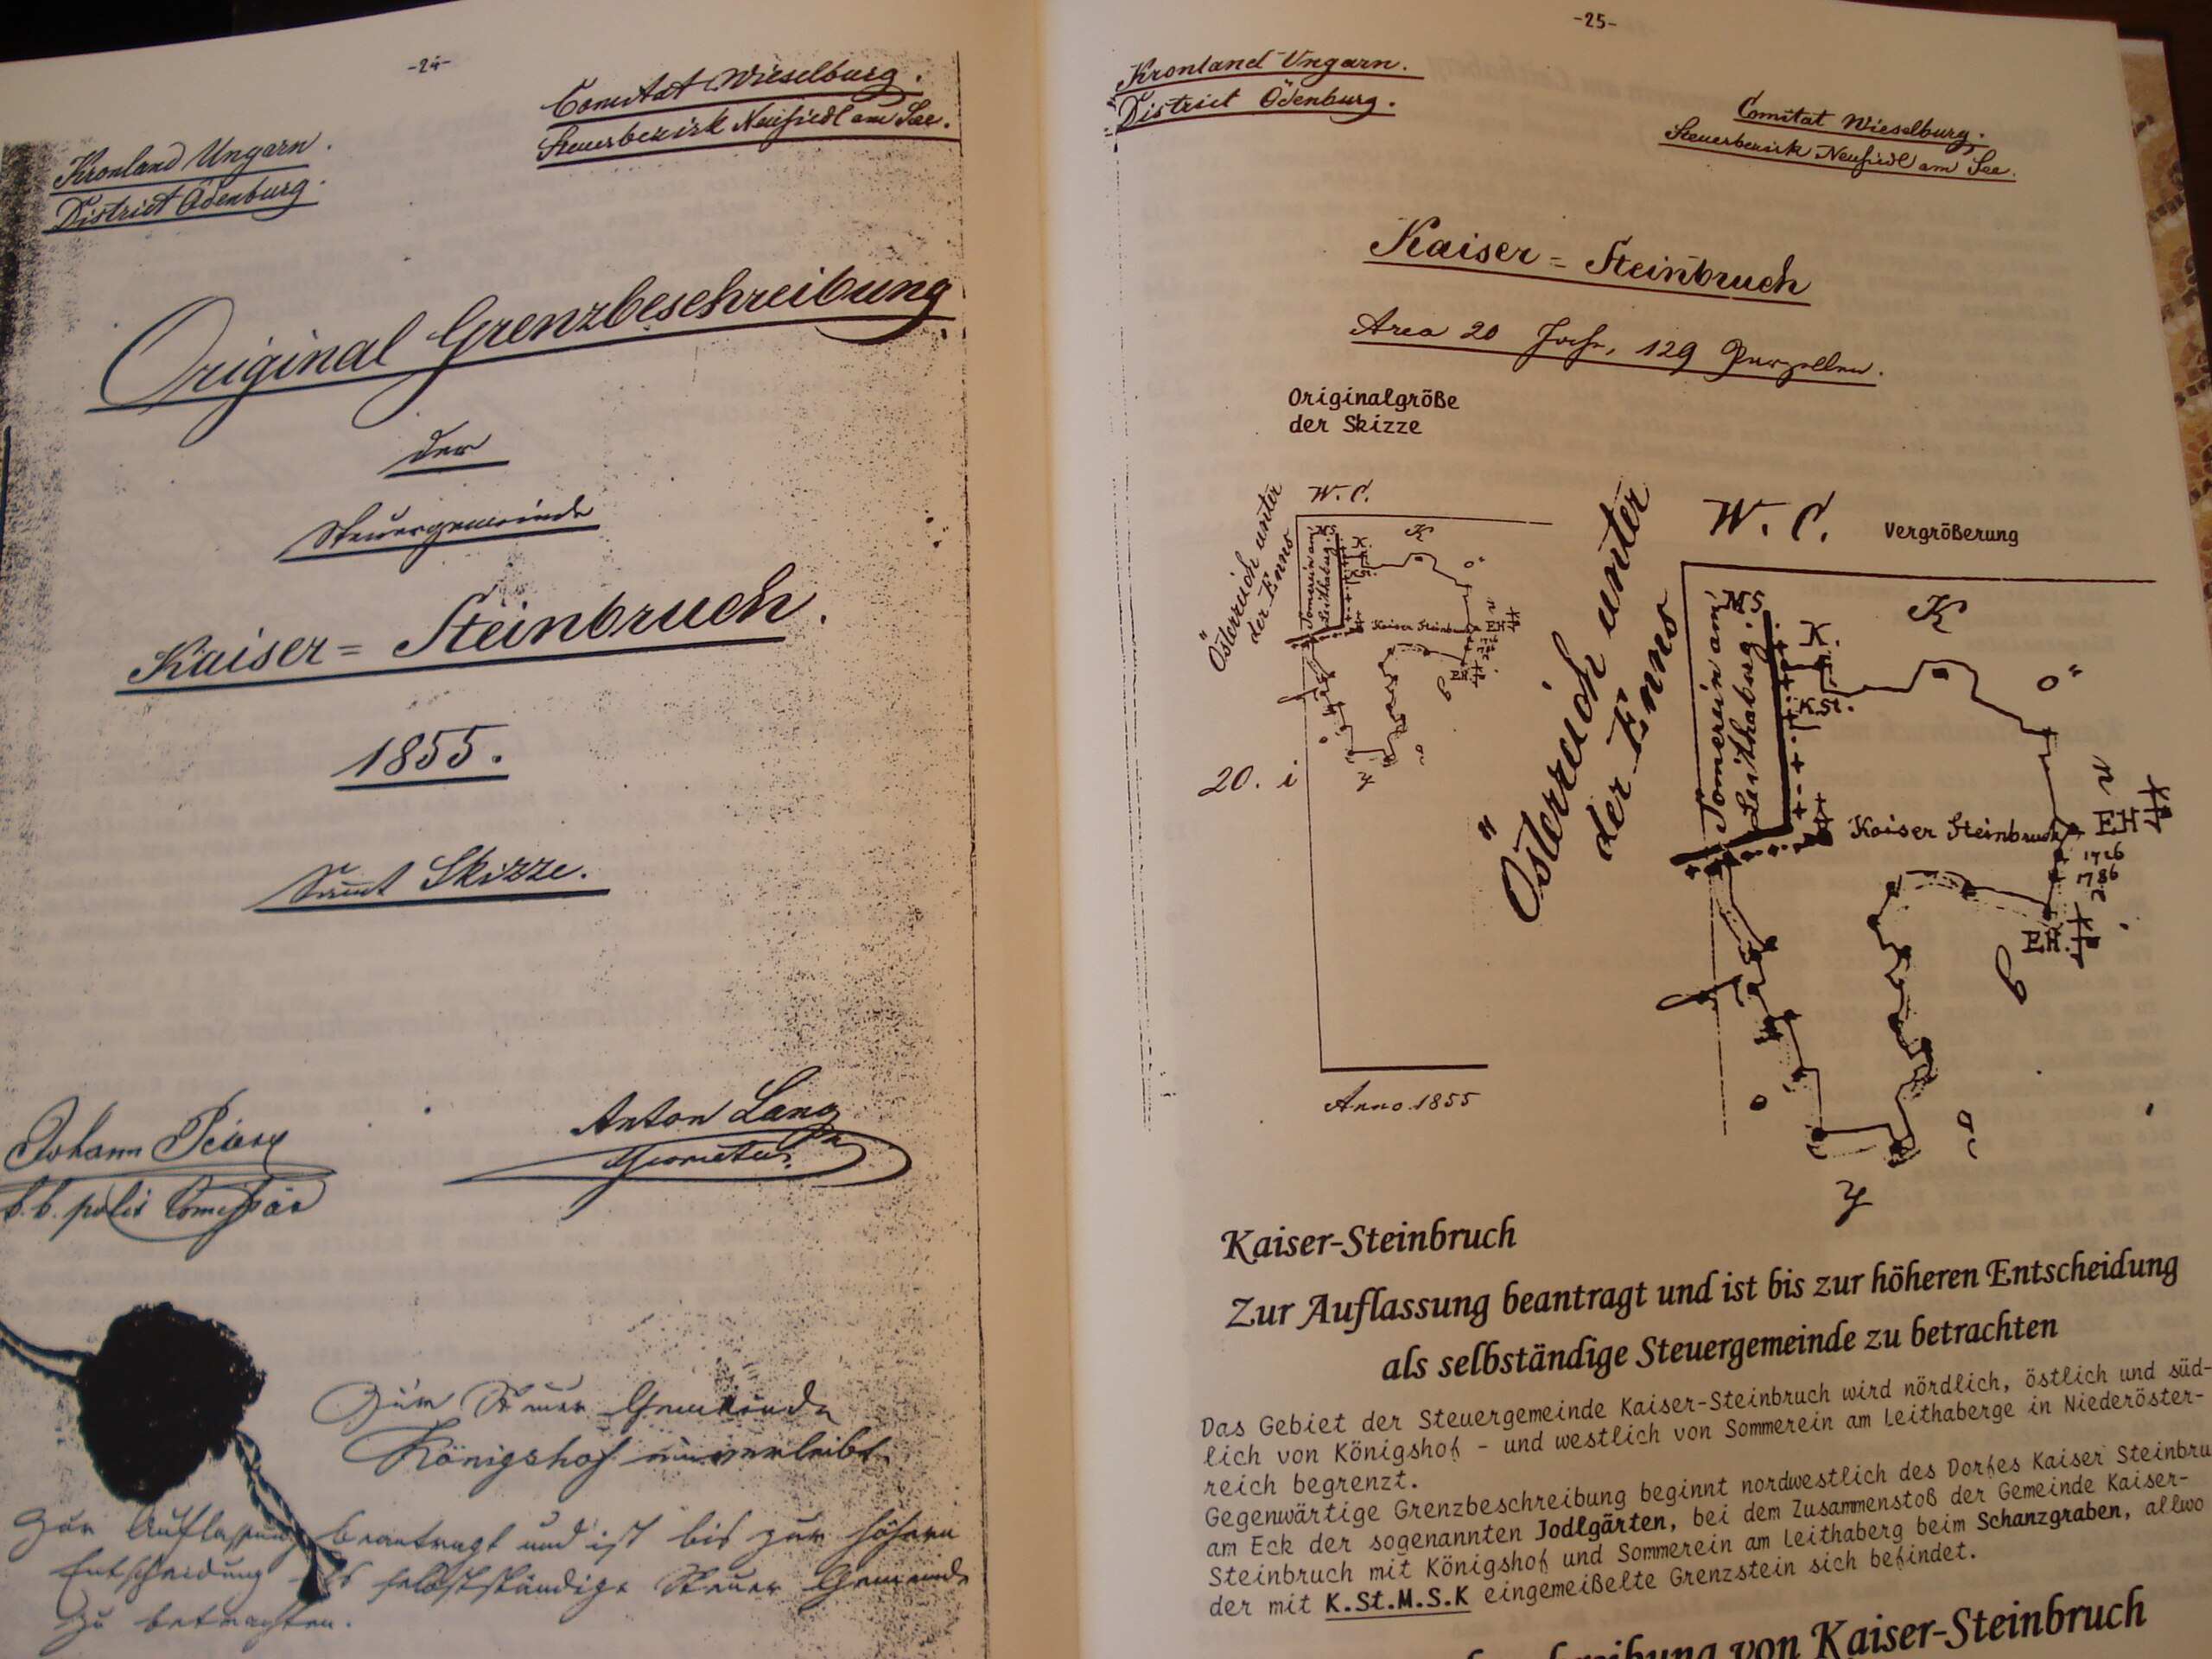 -24-
Comitat Wieselburg.
Steuerbezirk Neusiedl am See.
Kronland Ungarn.
District Ödenburg.
Original Grenzbeschreibung
der
Steuergemeinde
Kaiser = Steinbruch.
1855.
Sammt Skizze.
Johann
Anton Lang
Geometer.
k.k. polit Comissär
Zur Steuer Gemeinde
Königshof einverleibt.
Zur Auflassung beantragt und ist bis zur höhern
Entscheidung als selbstständige Steuer Gemeinde
zu betrachten.
-25-
Kronland Ungarn.
District Ödenburg.
Comitat Wieselburg.
Steuerbezirk Neusiedl am See.
Kaiser = Steinbruch
Area 20 Joch, 129 Parzellen.
Originalgröße
der Skizze
W. C.
Österreich unter
der Enns
Somerein am
Leithaburg.
M S
K
K.
K.St.
Kaiser Steinbruch
EH
EH
20. i
Anno 1855
W. C.
Vergrößerung
Österreich unter
der Enns
Somerein am
Leithaburg.
M S
K
K.
K.St.
Kaiser Steinbruch
EH
1726
1786
EH.
Kaiser-Steinbruch
Zur Auflassung beantragt und ist bis zur höheren Entscheidung
als selbständige Steuergemeinde zu betrachten
Das Gebiet der Steuergemeinde Kaiser-Steinbruch wird nördlich, östlich und süd-
lich von Königshof - und westlich von Sommerein am Leithaberge in Niederöster-
reich begrenzt.
Gegenwärtige Grenzbeschreibung beginnt nordwestlich des Dorfes Kaiser Steinbru
am Eck der sogenannten Jodlgärten, bei dem Zusammenstoß der Gemeinde Kaiser-
Steinbruch mit Königshof und Sommerein am Leithaberg beim Schanzgraben, allwo
der mit K.St.M.S.K eingemeißelte Grenzstein sich befindet.
von Kaiser-Steinbruch